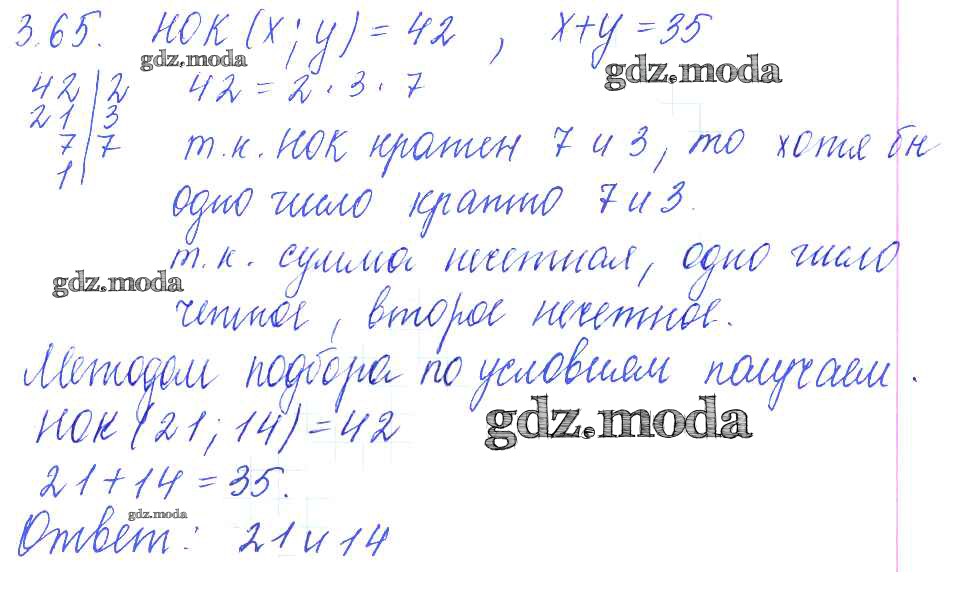 3.65. НОК (x; y) = 42 , x+y = 35
gdz.moda
gdz.moda
42 | 2 42 = 2 · 3 · 7
21 | 3
7 | 7 т.к. НОК кратен 7 и 3, то хотя бы
1
одно число кратно 7 и 3.
т.к. сумма нечетная, одно число
gdz.moda
четное, второе нечетное.
Методом подбора по условиям получаем.
НОК (21; 14) = 42
gdz.moda
21 + 14 = 35.
gdz.moda
Ответ: 21 и 14